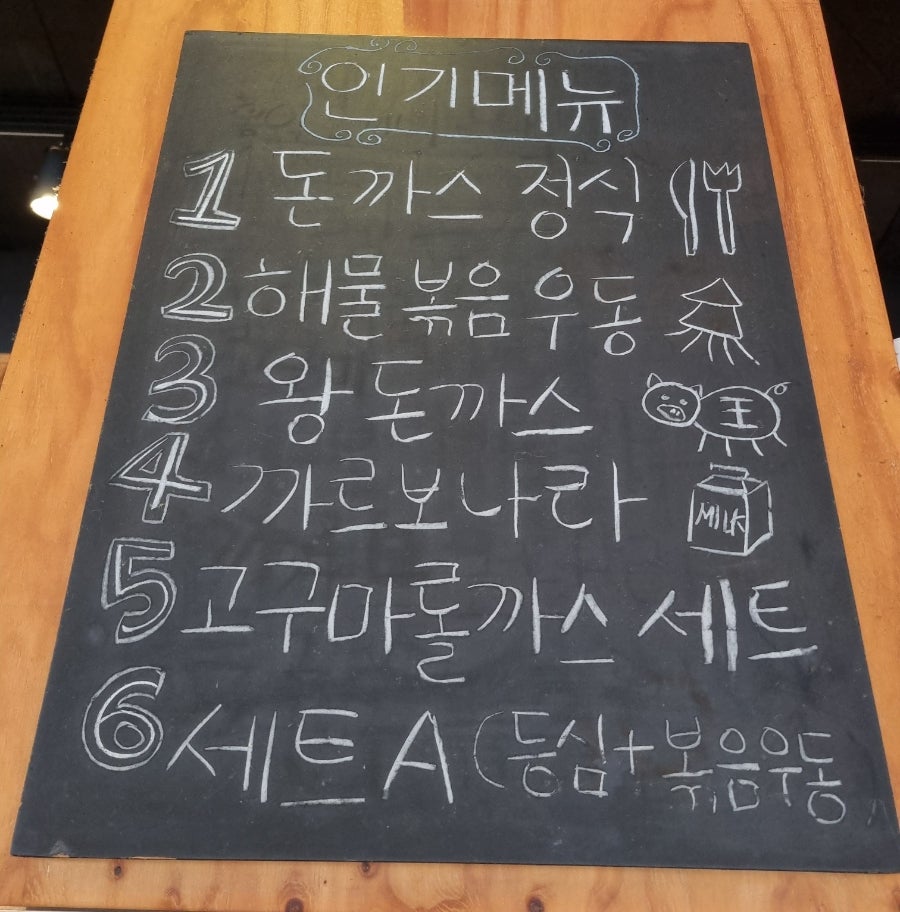 인기메뉴
1 돈까스 정식
2 해물볶음우동
3 왕돈까스 王
4 까르보나라 MILK
5 고구마롤까스 세트
6 세트A (등심+볶음우동